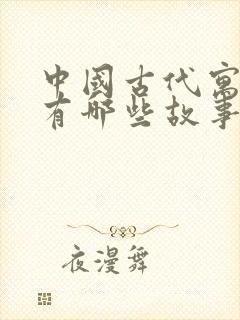 中國古代寓
有哪些故事
夜漫舞